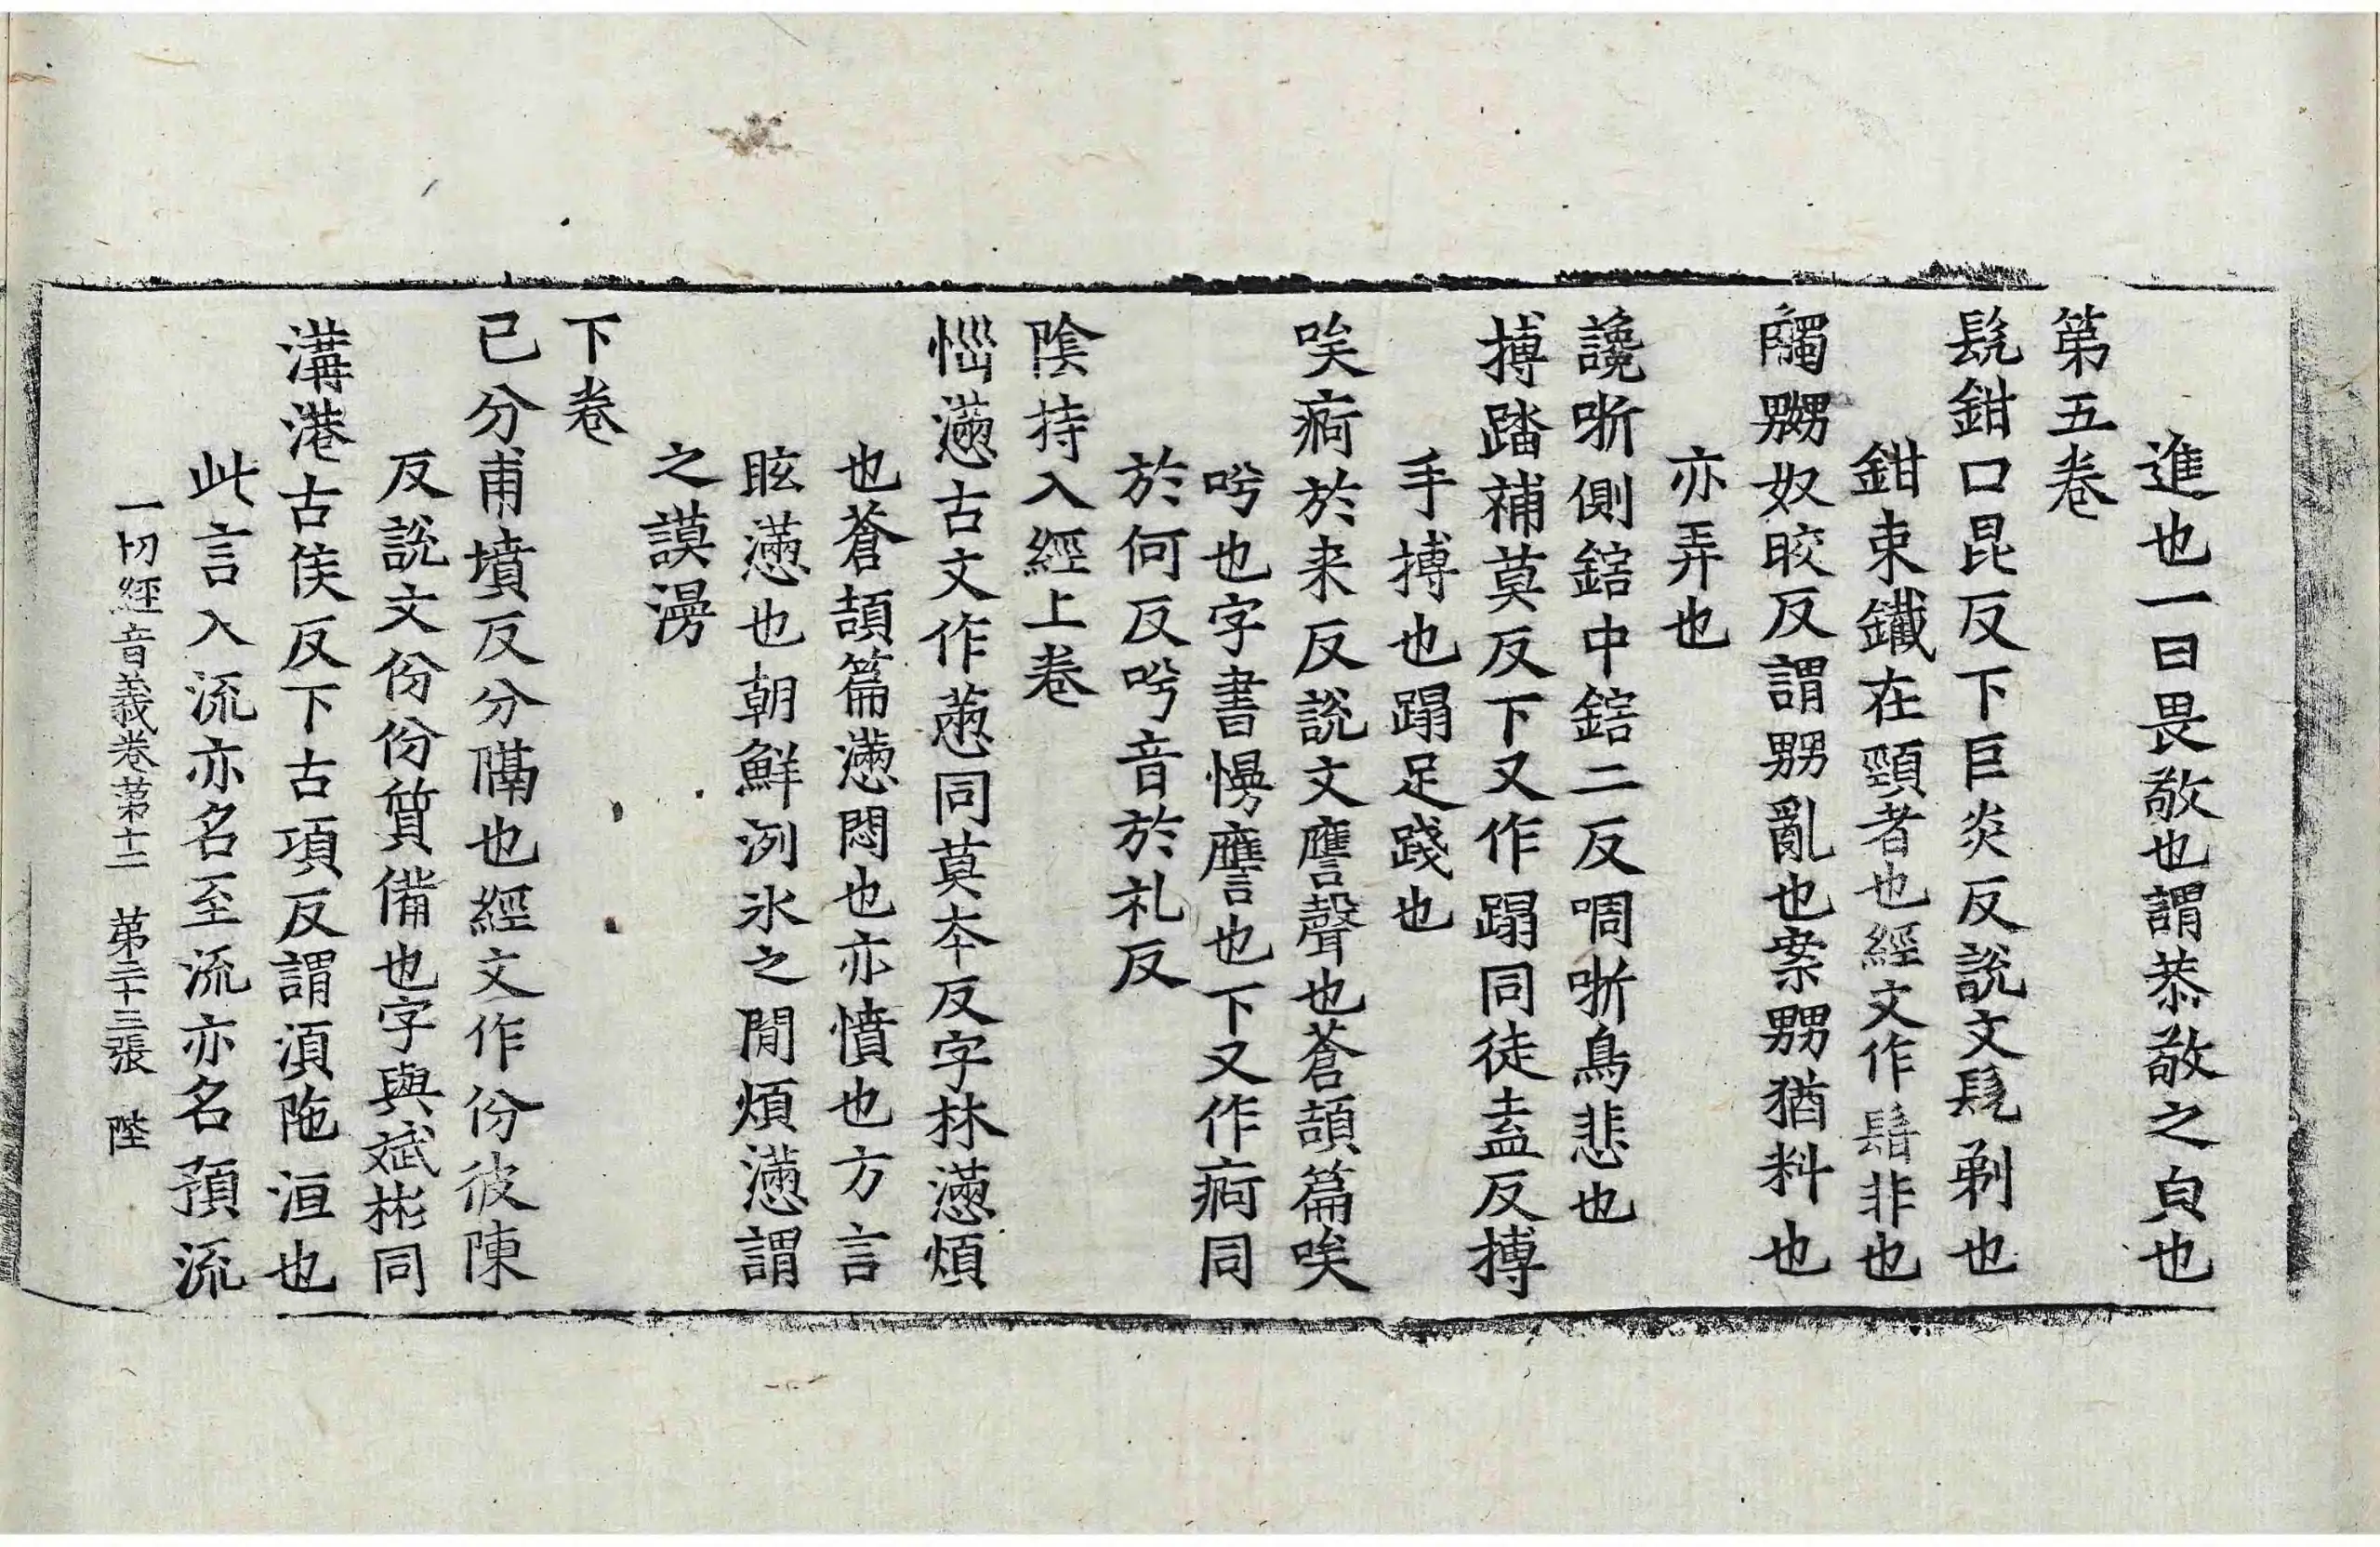 進也一曰畏敬也謂恭敬之皃也
第五卷
髡鉗口昆反下巨炎反說文髡剃也
鉗束鐵在頸者也經文作䯰非也
觸嬲奴皎反謂嬲亂也案嬲猶料也
亦弄也
讒哳側鎋中鎋二反啁哳鳥悲也
搏踏補莫反下又作蹋同徒盍反搏
手搏也蹋足踐也
唉痾於来反說文譍聲也蒼頡篇唉
吟也字書慢譍也下又作痾同
於何反吟音於礼反
陰持入經上卷
懣古文作同莫夲反字林懣煩
也蒼頡篇懣悶也亦憤也方言
眩懣也朝鮮洌氷之閒煩懣謂
之謨漫
下卷
已分甫墳反分隔也經文作份彼陳
反說文份份質備也字與斌彬同
溝港古侯反下古項反謂湏陁洹也
此言入流亦名至流亦名預流
一切經音義卷第十二 第二十三張 陛